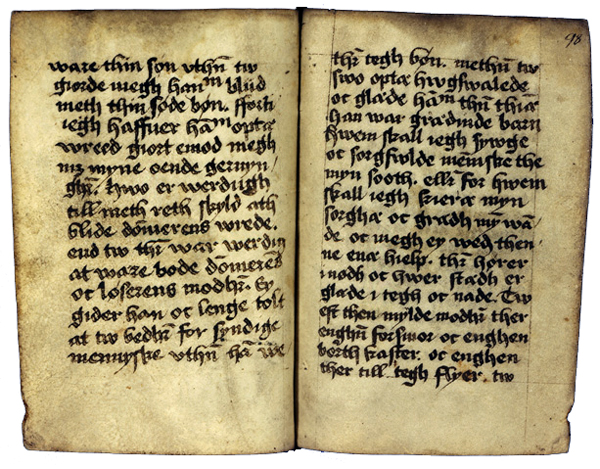 ware thin son vthn tw
giorde megh hanm blijd
meth thin søde bøn. fforti
iegh haffuer ham opta
wreed giort emod megh
mz myne oende gernyn,
ghr. Hwo er werdugh
till meth reth skyld ath
blide dømerens wrede.
end tw thr war werdin
at ware bode dømerens
oc løserens modhr. Ey
gider han oc lenge tolt
at tw bedhr for syndige
mennyske vthn ha we
98
thr tegh bøn. methn tw
swo opta hwgswalede
oc glade ham thn thia
han war grædinde barn
hwem skall iegh sywge
oc sorgfulde menniske the
myn sooth. ellr for hwem
skall iegh kiera myn
sorgha oc gradh my wan,
de oc megh ey wedh then,
ne ena hielp. thr hører
i nodh oc hwer stadh er
glade i tegh oc nade. Tw
est then mylde modhr ther
enghn forswor oc enghen
børth kaster. oc enghen
ther till tegh flyer tw